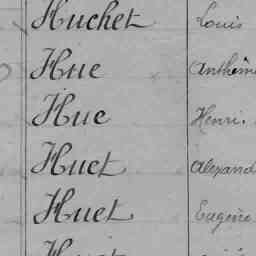 Huchet Louis
Hue Anthêm
Hue Henri.
Huet Alexand
Huet Eugène